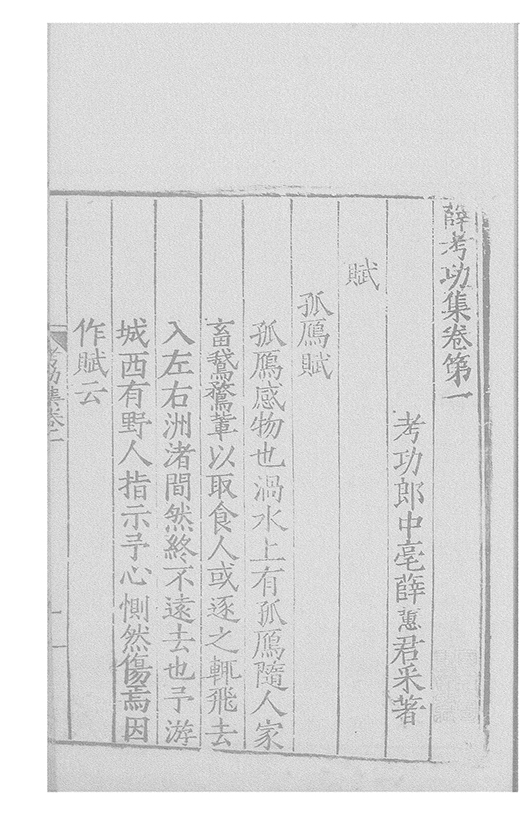 薛考功集卷第一
考功郎中亳薛蕙君采著
賦
孤鴈賦
孤鴈感物也渦水上有孤鴈隨人家
畜鵞鶩軰以取食人或逐之輒飛去
入左右洲渚間然終不遠去也予游
城西有野人指示予心惻然傷焉因
作賦云